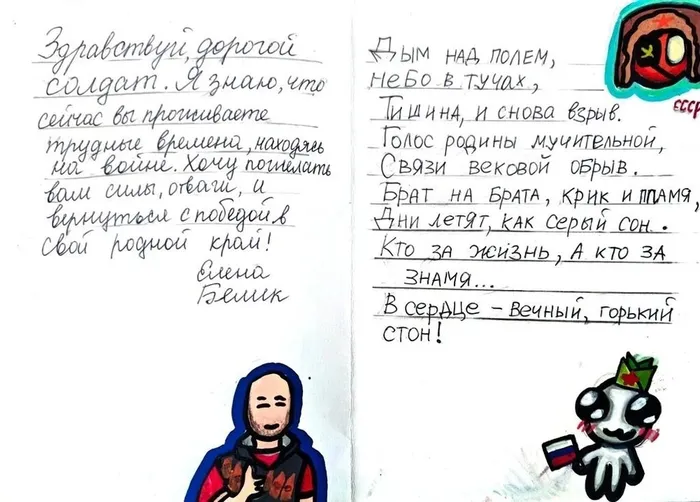 Здравствуй, дорогой
солдат. Я знаю, что
сейчас вы проживаете
трудные времена, находясь
на войне. Хочу пожелать
вам силы, отваги, и
вернуться с победой в
свой родной край!
Елена
Белик
СССР
Дым над полем,
небо в тучах,
Тишина, и снова взрыв.
Голос родины мучительной,
Связи вековой обрыв.
Брат на брата, крик и пламя,
Дни летят, как серый сон.
Кто за жизнь, а кто за
знамя...
В сердце – вечный, горький
стон!